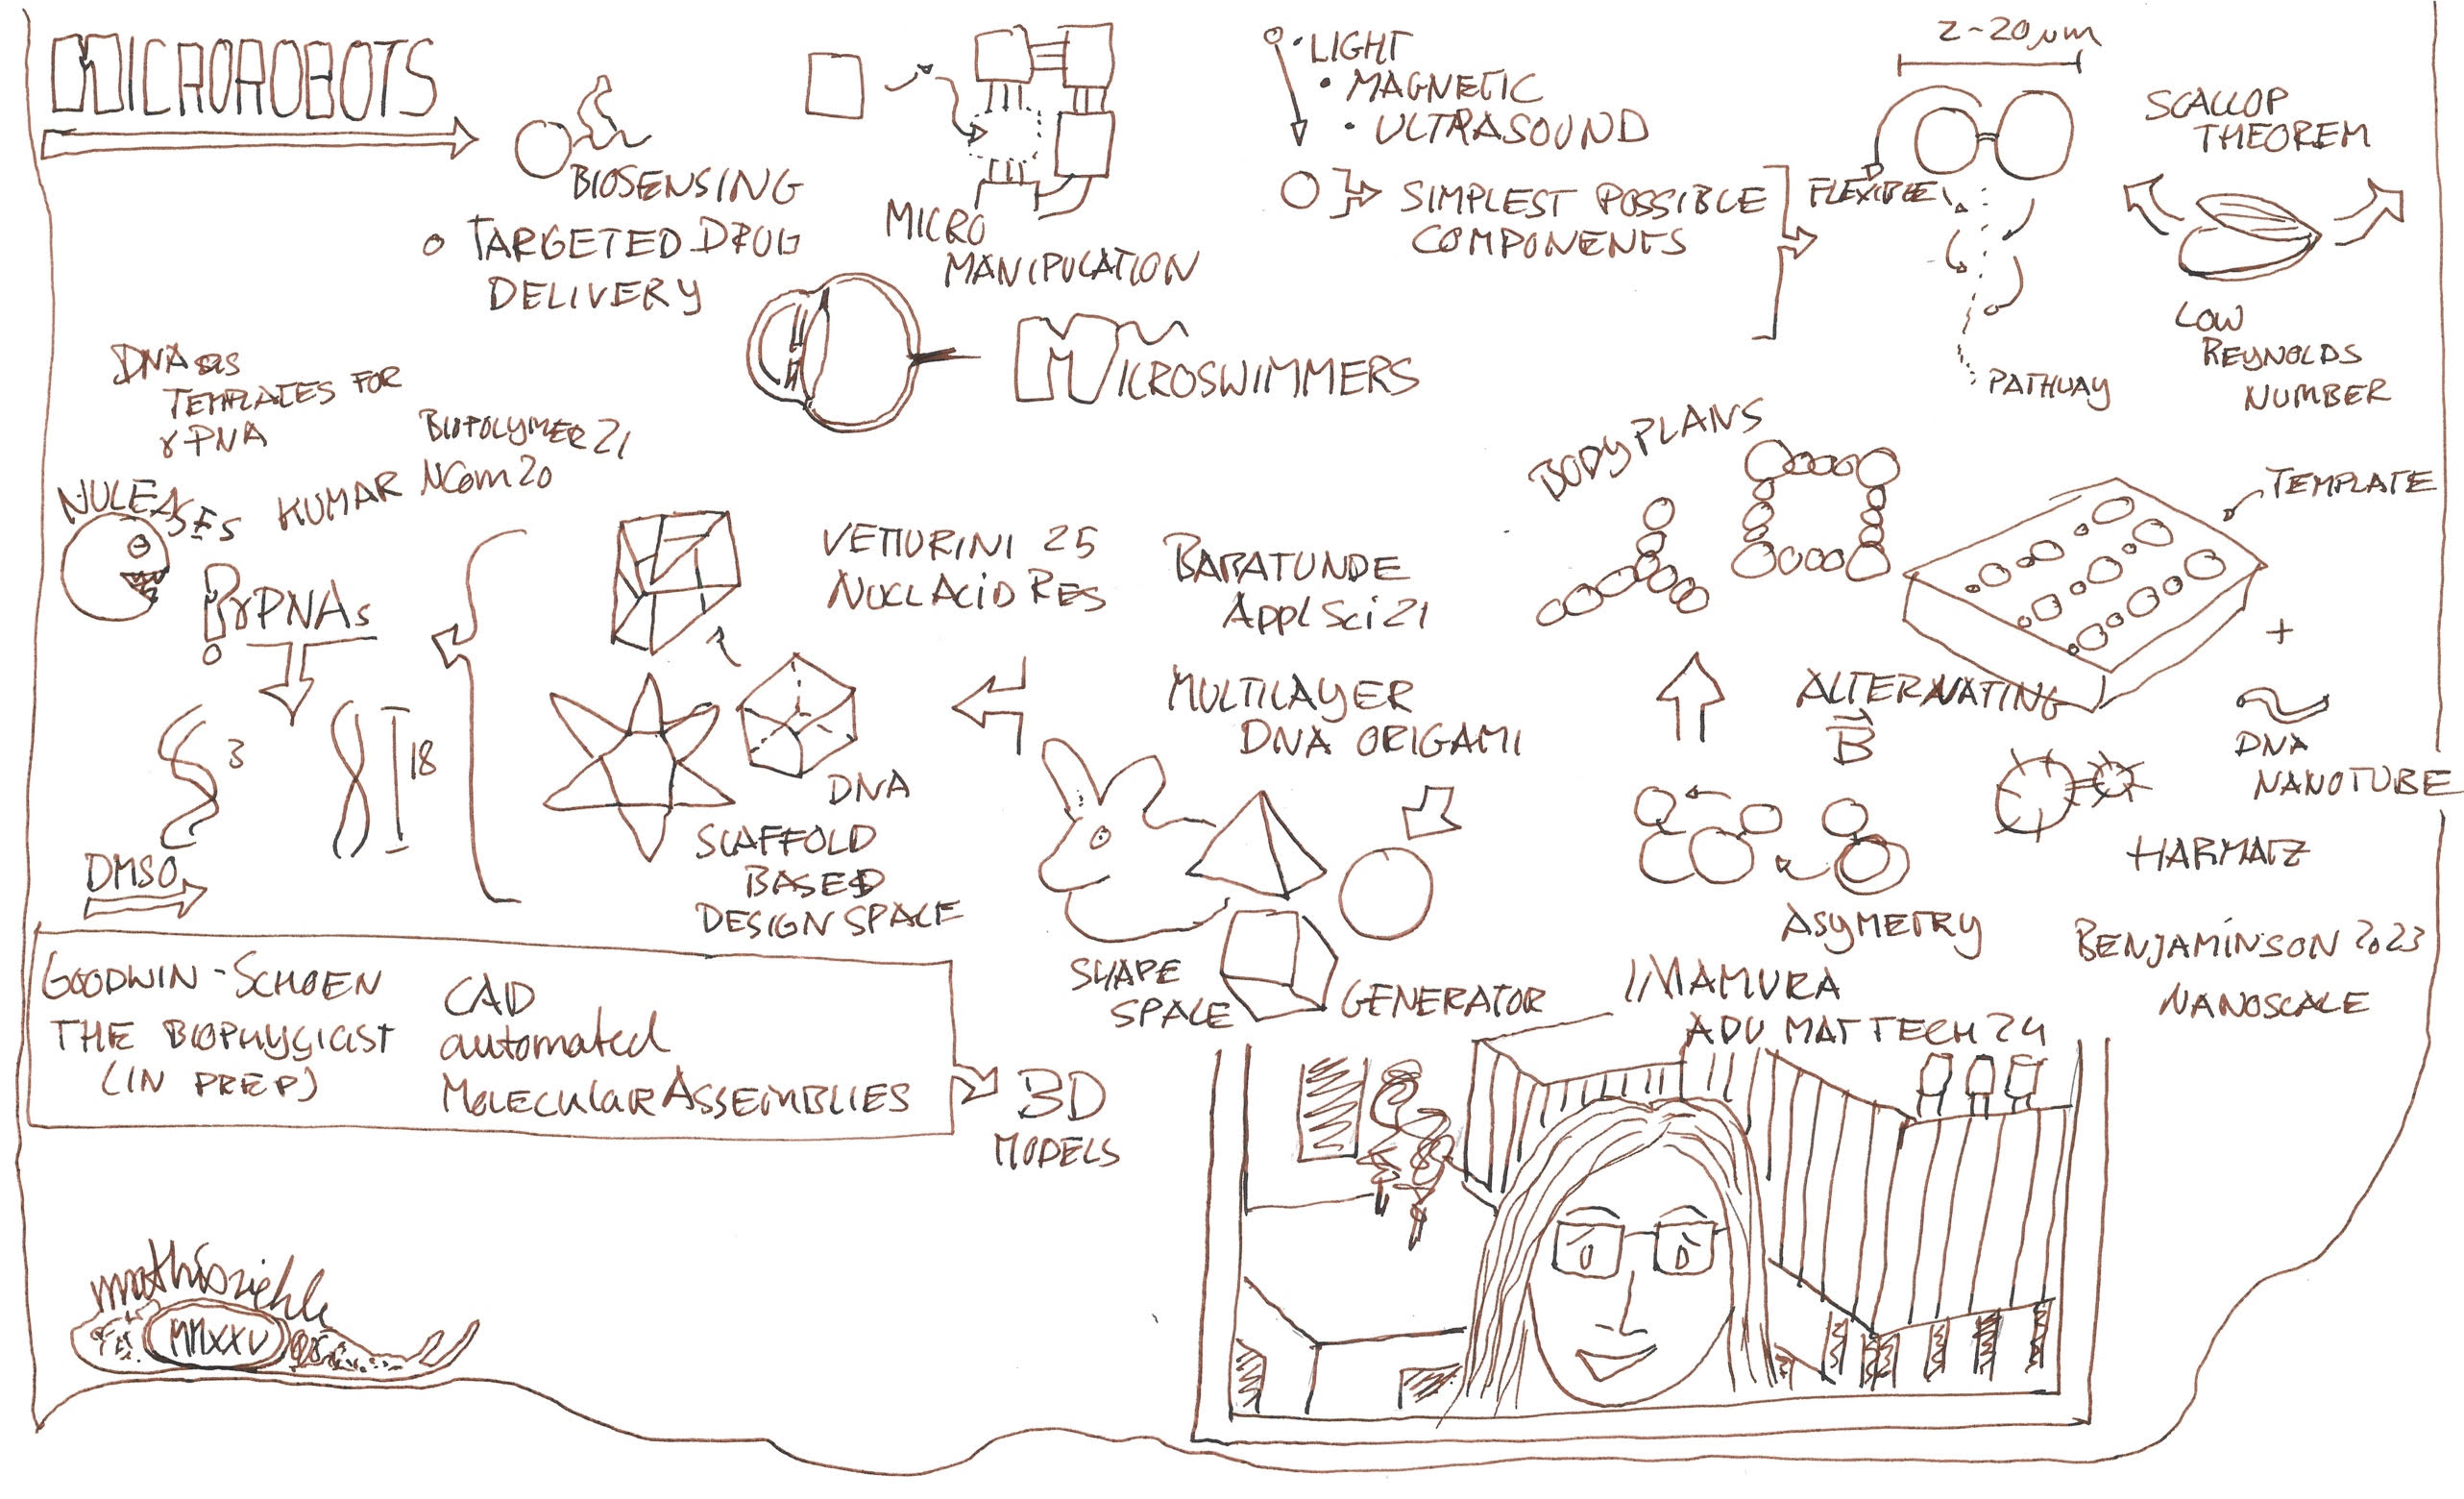 MICROROBOTS
BIOSENSING
TARGETED DRUG
DELIVERY
MICRO
MANIPULATION
• LIGHT
• MAGNETIC
• ULTRASOUND
SIMPLEST POSSIBLE
COMPONENTS
2-20 µm
FLEXIBLE
PATHWAY
SCALLOP
THEOREM
LOW
REYNOLDS
NUMBER
MICROSWIMMERS
DNA as
TEMPLATES FOR
γPNA
BIOPOLYMER 21
KUMAR NCom 20
NULEASES
γPNAs
3
18
DMSO
VETTURINI 25
NUCL ACID RES
BABATUNDE
Appl Sci 21
MULTILAYER
DNA ORIGAMI
DNA
SCAFFOLD
BASED
DESIGN SPACE
SHAPE
SPACE
GENERATOR
BODYPLANS
TEMPLATE
+
DNA
NANOTUBE
ALTERNATING
B
HARMATZ
ASYMETRY
BENJAMINSON 2023
NANOSCALE
IMAMURA
ADV MAT TECH 24
GOODWIN-SCHOEN
THE BIOPHYSICIST
(IN PREP)
CAD
automated
MOLECULAR ASSEMBLIES
3D
MODELS
mathis riehle
MMXXV